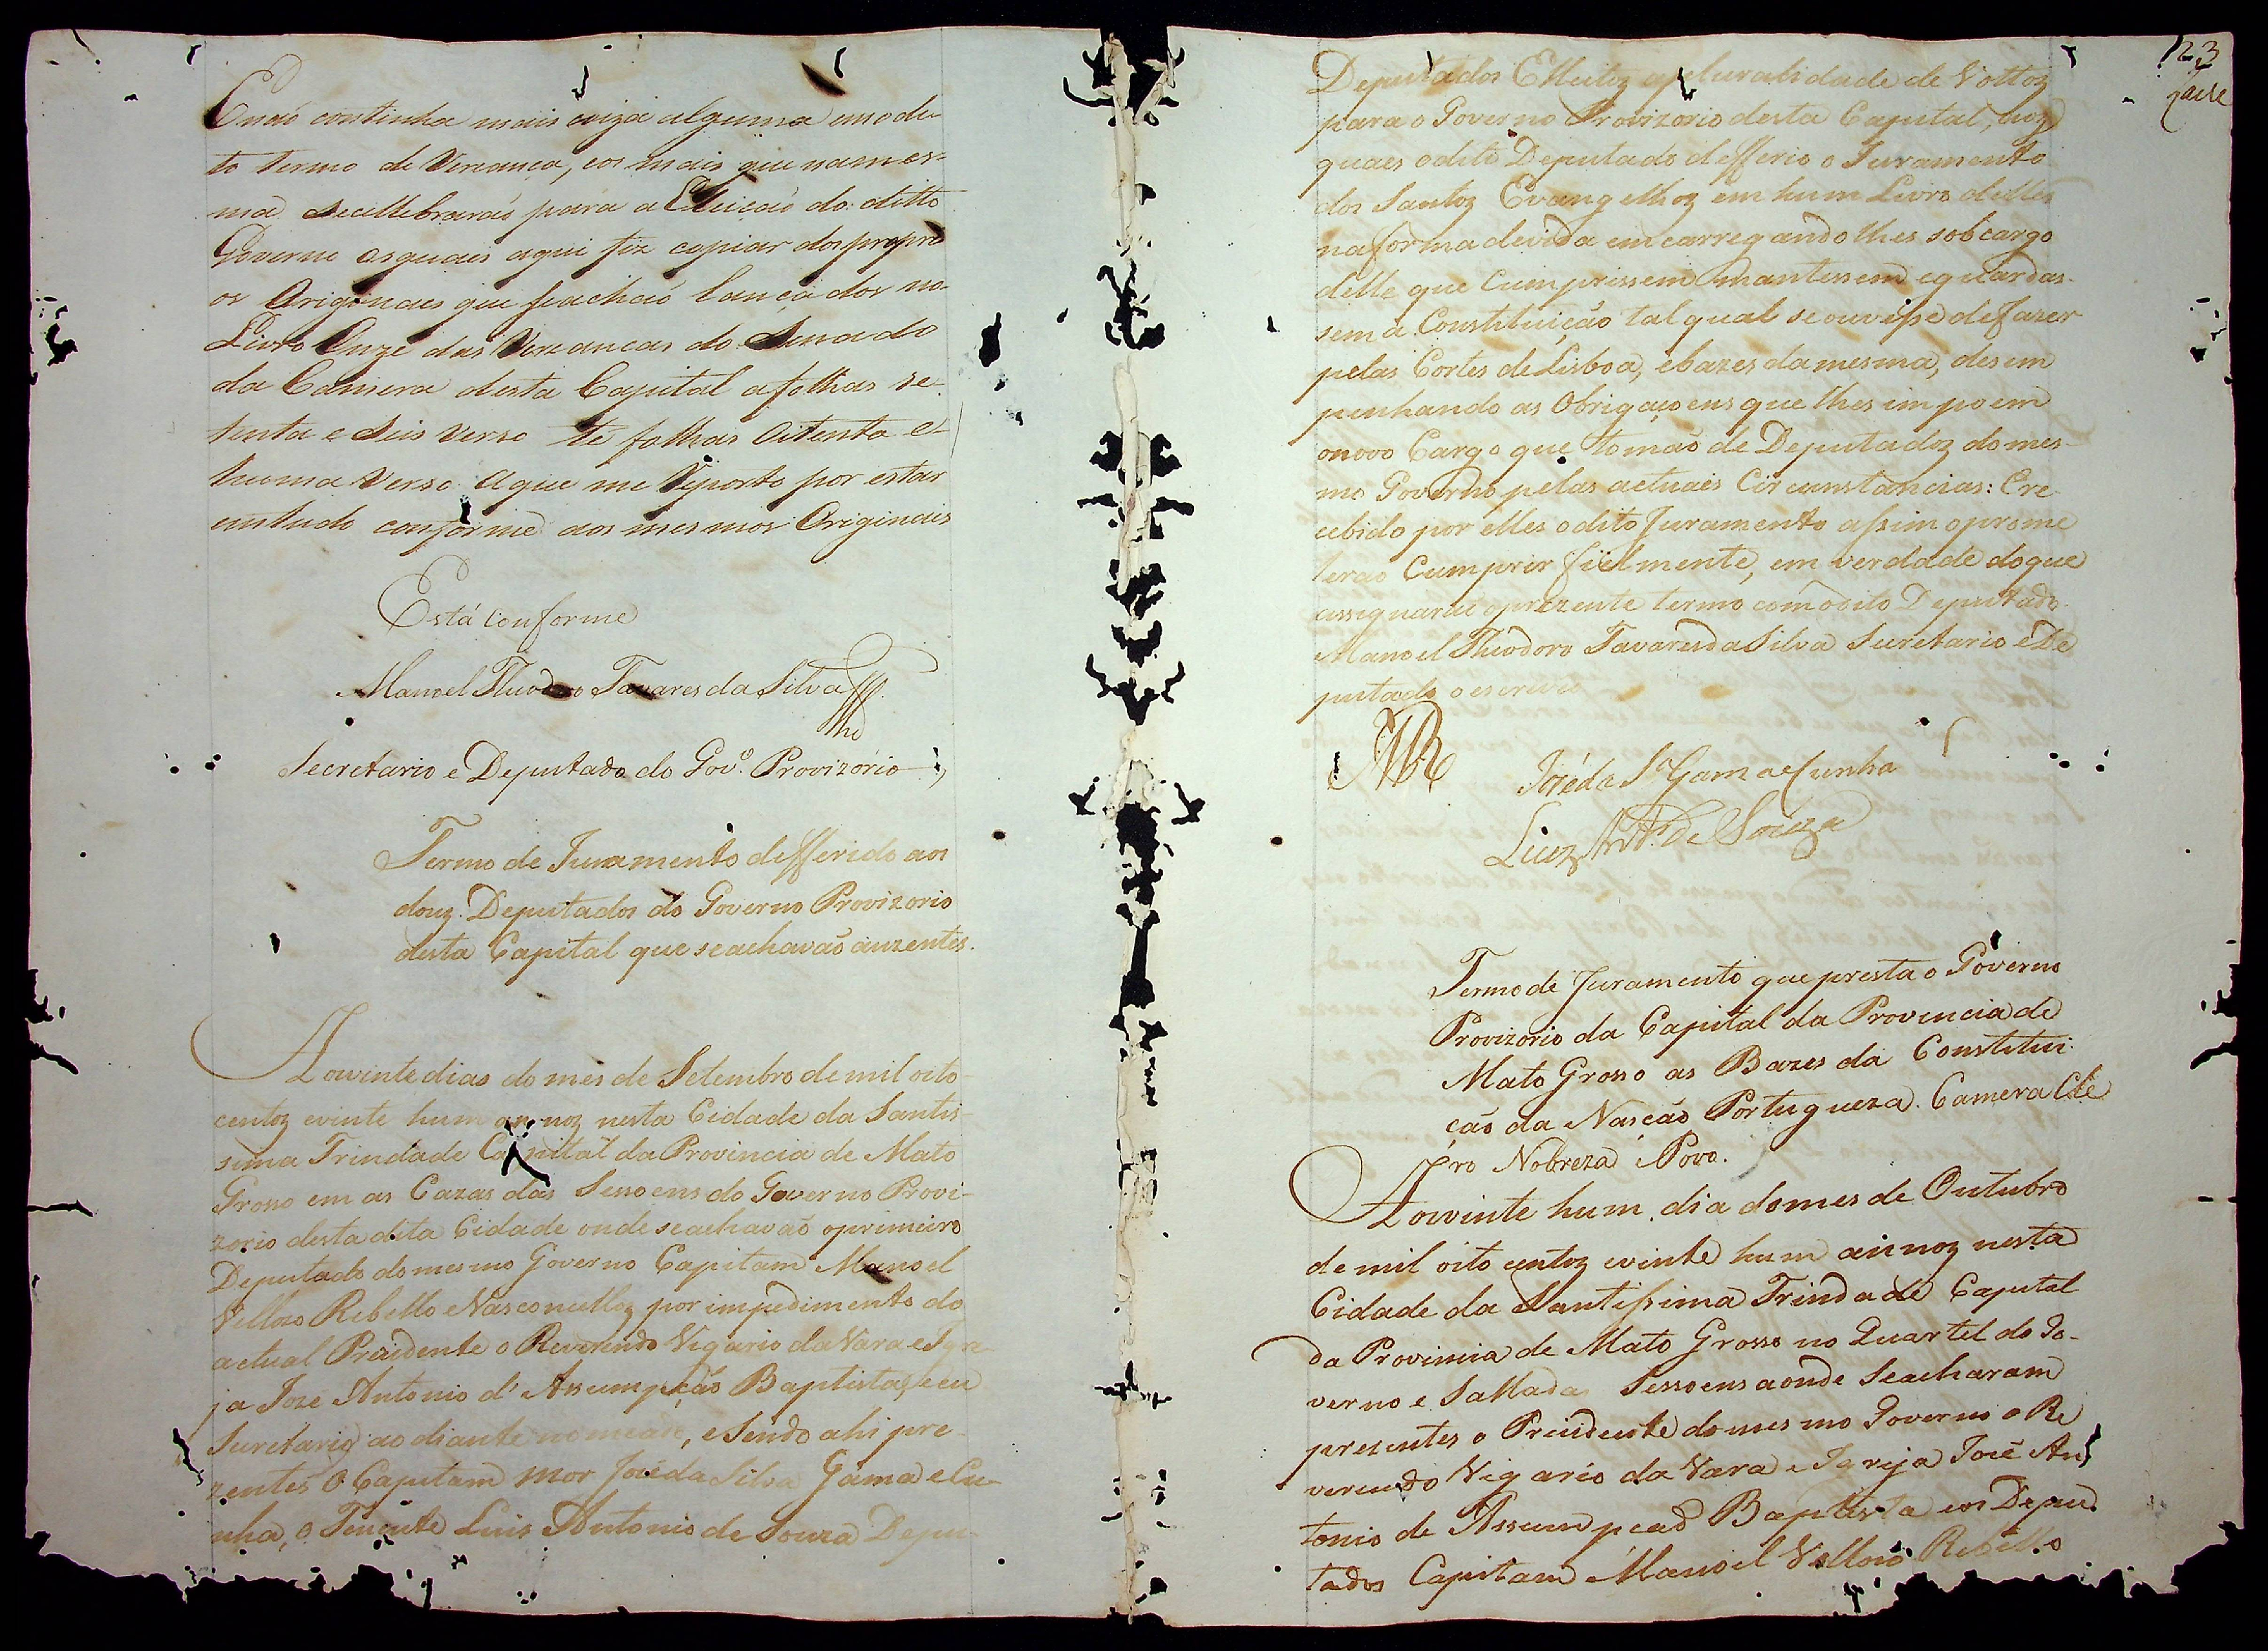 Enaõ continha mais coiza alguma emodi-
to termo de Vereança, eos mais que namés-
ma secellebraraõ para a Elleicaõ do ditto
Governo osquais aqui fiz copiar dos propri
os Originaes que seachaõ lançados no
Livro Onze das Vereancas do Senado
da Camera desta Capital afolhas se-
tenta e Seis Verso té folhas Oitenta e
huma Verso aque me Reporto por estar
emtudo conforme aos mesmos Originais
Está conforme
Manoel Theodoro Tavares da Silva
Secretario e Deputado do Gov.º Provizório
Termo de Juramento defferido aos
douz Deputados do Governo Provizorio
desta Capital que seachavaõ auzentes.
Aovinte dias do mes de Setembro de mil oito-
centoz evinte hum annoz nesta Cidade da Santis-
sima Trindade Capital da Provincia de Mato
Grosso em as Cazas das Sessoens do Governo Provi-
zorio desta dita Cidade onde seachavaõ oprimeiro
Deputado domesmo Governo Capitam Manoel
Vellozo Rebello eVasconcelloz por impedimento do
actual Prezidente o Reverendo Vigario da Vara e Igre-
ja Joze Antonio d'Assumpçaõ Baptista, e eu
Secretario ao diante nomeado, e Sendo ahi pre-
zentes O Capitam mor José da Silva Gama e Cu-
nha, o Tenente Luis Antonio de Souza Depu-
123
Deputados Elleitoz apluralidade de Vottoz
para o Governo Provizorio desta Capital, aoz
quaes odito Deputado defferio o Juramento
dos Santoz Evangelhoz em hum Livro delles
naforma devida emcarregandolhes sobcargo
delle que Cumprissem mantessem eguardas-
sem a Constituição tal qual seouvesse defazer
pelas Cortes de Lisboa, ebazes da mesma, desem
penhando as Obrigaçoens que lhes impoem
onovo Cargo que tomaõ de Deputadoz domes-
mo Governo pelas actuaes Circunstancias: Ere-
cebido por elles odito Juramento assim oprome
teraõ Cumprir fielmente, em verdade doque
assignaraõ oprezente termo com odito Deputado
Manoel Theodoro Tavares da Silva Secretario e De
putado oescrevi
José da S.ª Gama e Cunha
Luiz Ant.º de Souza
Termo de Juramento que presta o Governo
Provizorio da Capital da Provincia de
Mato Grosso as Bazes da Constitui-
çaõ da Nasçaõ Portugueza. Camera Cle
ro Nobreza e Povo.
Aovinte hum dia domes de Outubro
de mil oito centoz evinte hum annoz nesta
Cidade da Santissima Trindade Capital
da Provincia de Mato Grosso no Quartel do Go-
verno e Salla das Sessoens aonde Seacharam
presentes o Prezidente domesmo Governo o Re
verendo Vigario da Vara e Igreja José An
tonio de Assumpcaõ Baptista eos Depu-
tados Capitam Manoel Vellozo Rebello